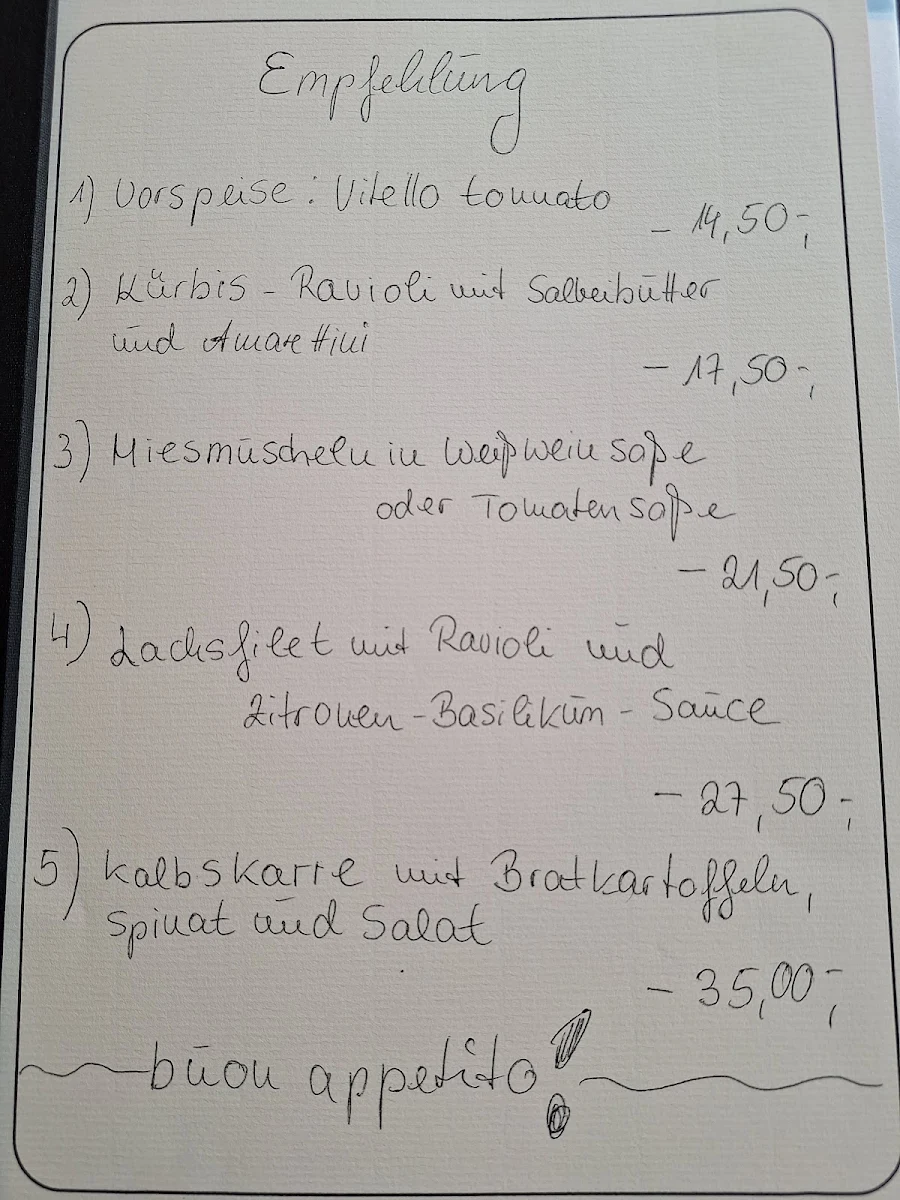 Empfehlung
1) Vorspeise: Vitello tonnato
- 14,50-,
2) Kürbis - Ravioli mit Salbeibutter
und Amarettini
- 17,50-,
3) Miesmuscheln in Weißweinsoße
oder Tomatensoße
- 21,50-,
4) Lachsfilet mit Ravioli und
Zitronen - Basilikum - Sauce
- 27,50-,
5) Kalbskarre mit Bratkartoffeln,
Spinat und Salat
- 35,00-,
buon appetito!